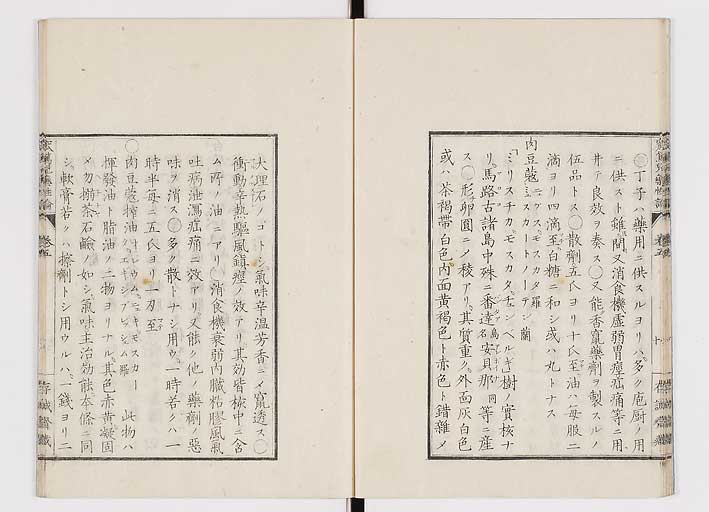 丁子ハ藥用ニ供スルヨリハ多ク庖厨ノ用
ニ供スト雖間又消食機虚弱胃痙疝痛等ニ用
井テ良效ヲ奏ス〇又能香竄藥劑ヲ製スルノ
伍品トス〇散劑五氏ヨリ十氏至油ハ毎服二
滴ヨリ四滴至白糖ニ和シ或ハ丸トナス
肉豆蔲 ニグス、モスカタ羅 ミスカートノーテン蘭
「ミリスチカ、モスカタ」樹ノ實核ナ
リ馬路古諸島中殊ニ番達島名安貝那同等ニ産
ス〇形卵圓ニノ稜アリ其質重ク外面灰白色
或ハ茶褐帶白色内面黄褐色ト赤色ト錯雜メ
大理石ノゴトシ氣味辛温芳香ニメ竄透ス〇
衝動辛熱驅風鎭痙ノ效アリ其効皆核中ニ含
ム所ノ油ニアリ〇消食機衰弱内臟粘膠風氣
吐病泄瀉疝痛ニ效アリ又能ク他ノ藥劑ノ惡
味ヲ消ス〇多ク散トナシ用ウ一時若クハ一
時半毎ニ五氏ヨリ一刃至
〇肉豆蔲搾油 此物ハ
揮發油ト脂油ノ二物ヨリナル其色赤黄凝固
メカ搦茶石鹸ノ如シ氣味主治功能本條ニ同
シ軟膏若クハ擦劑トシ用ウルハ一錢ヨリ二
卷五